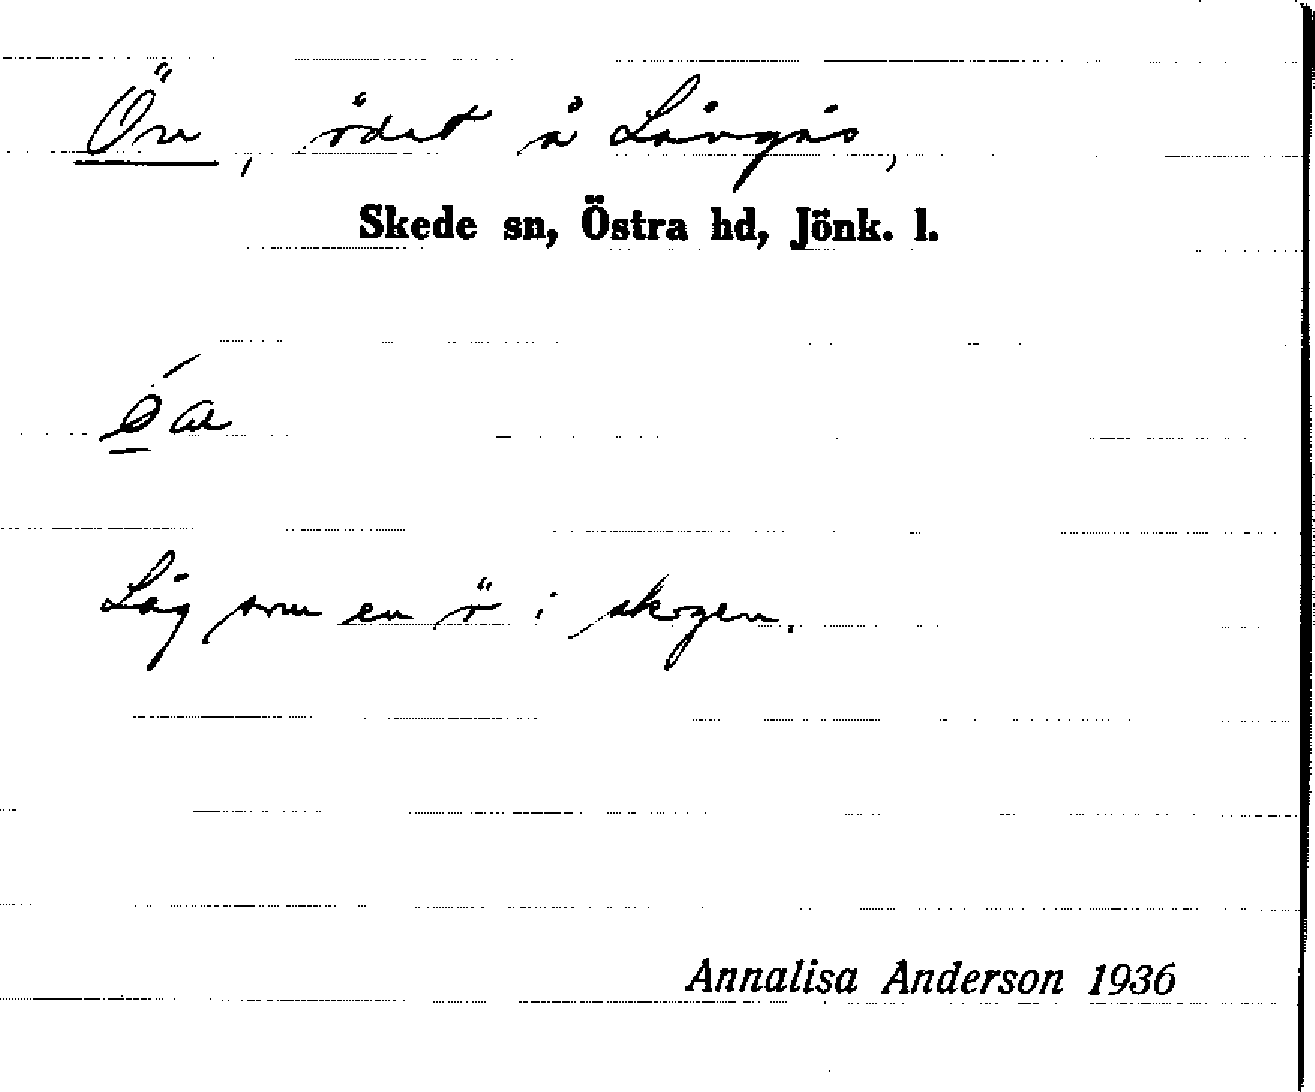 Ön, ödet å Långås,
Skede sn, Östra hd, Jönk. l.
Låg som en ö i skogen.
Annalisa Anderson 1936